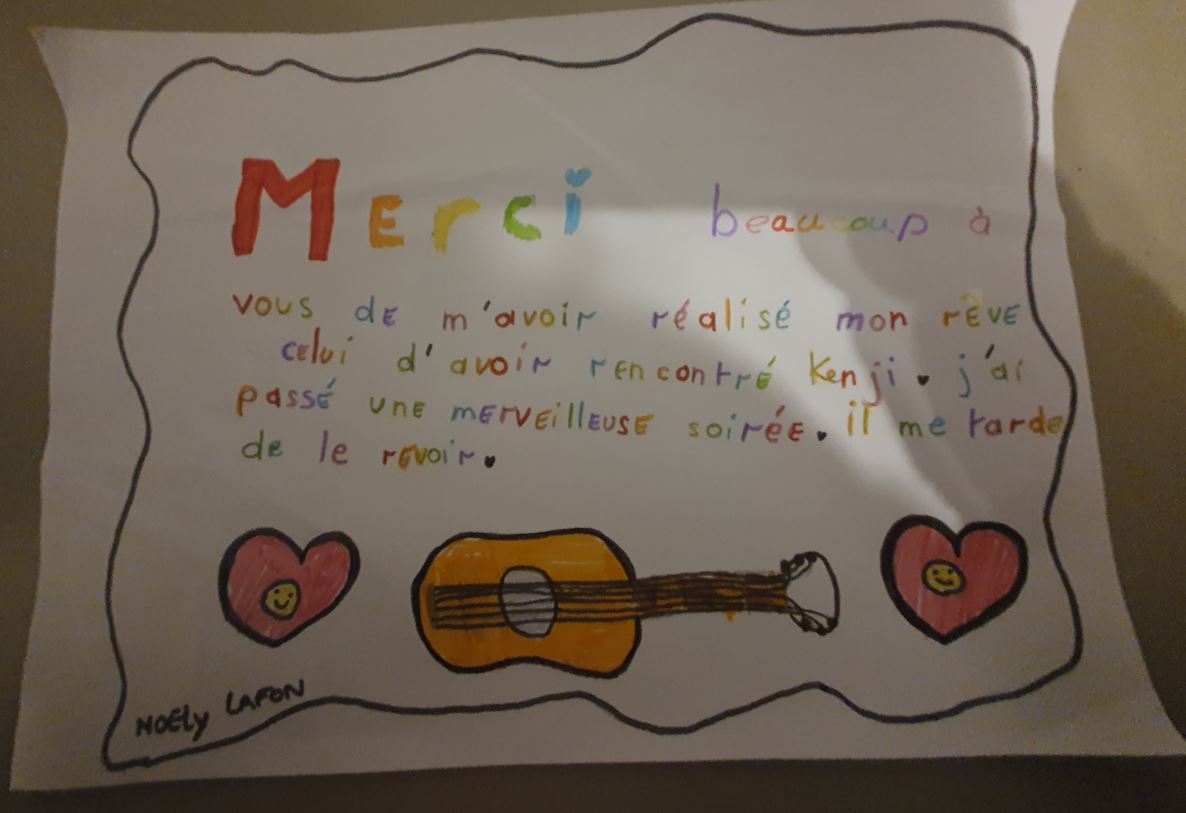 Merci beaucoup à
vous de m'avoir réalisé mon rêve
celui d'avoir rencontré Kenji. j'ai
passé une merveilleuse soirée. il me tarde
de le revoir.
NOËly LAFON